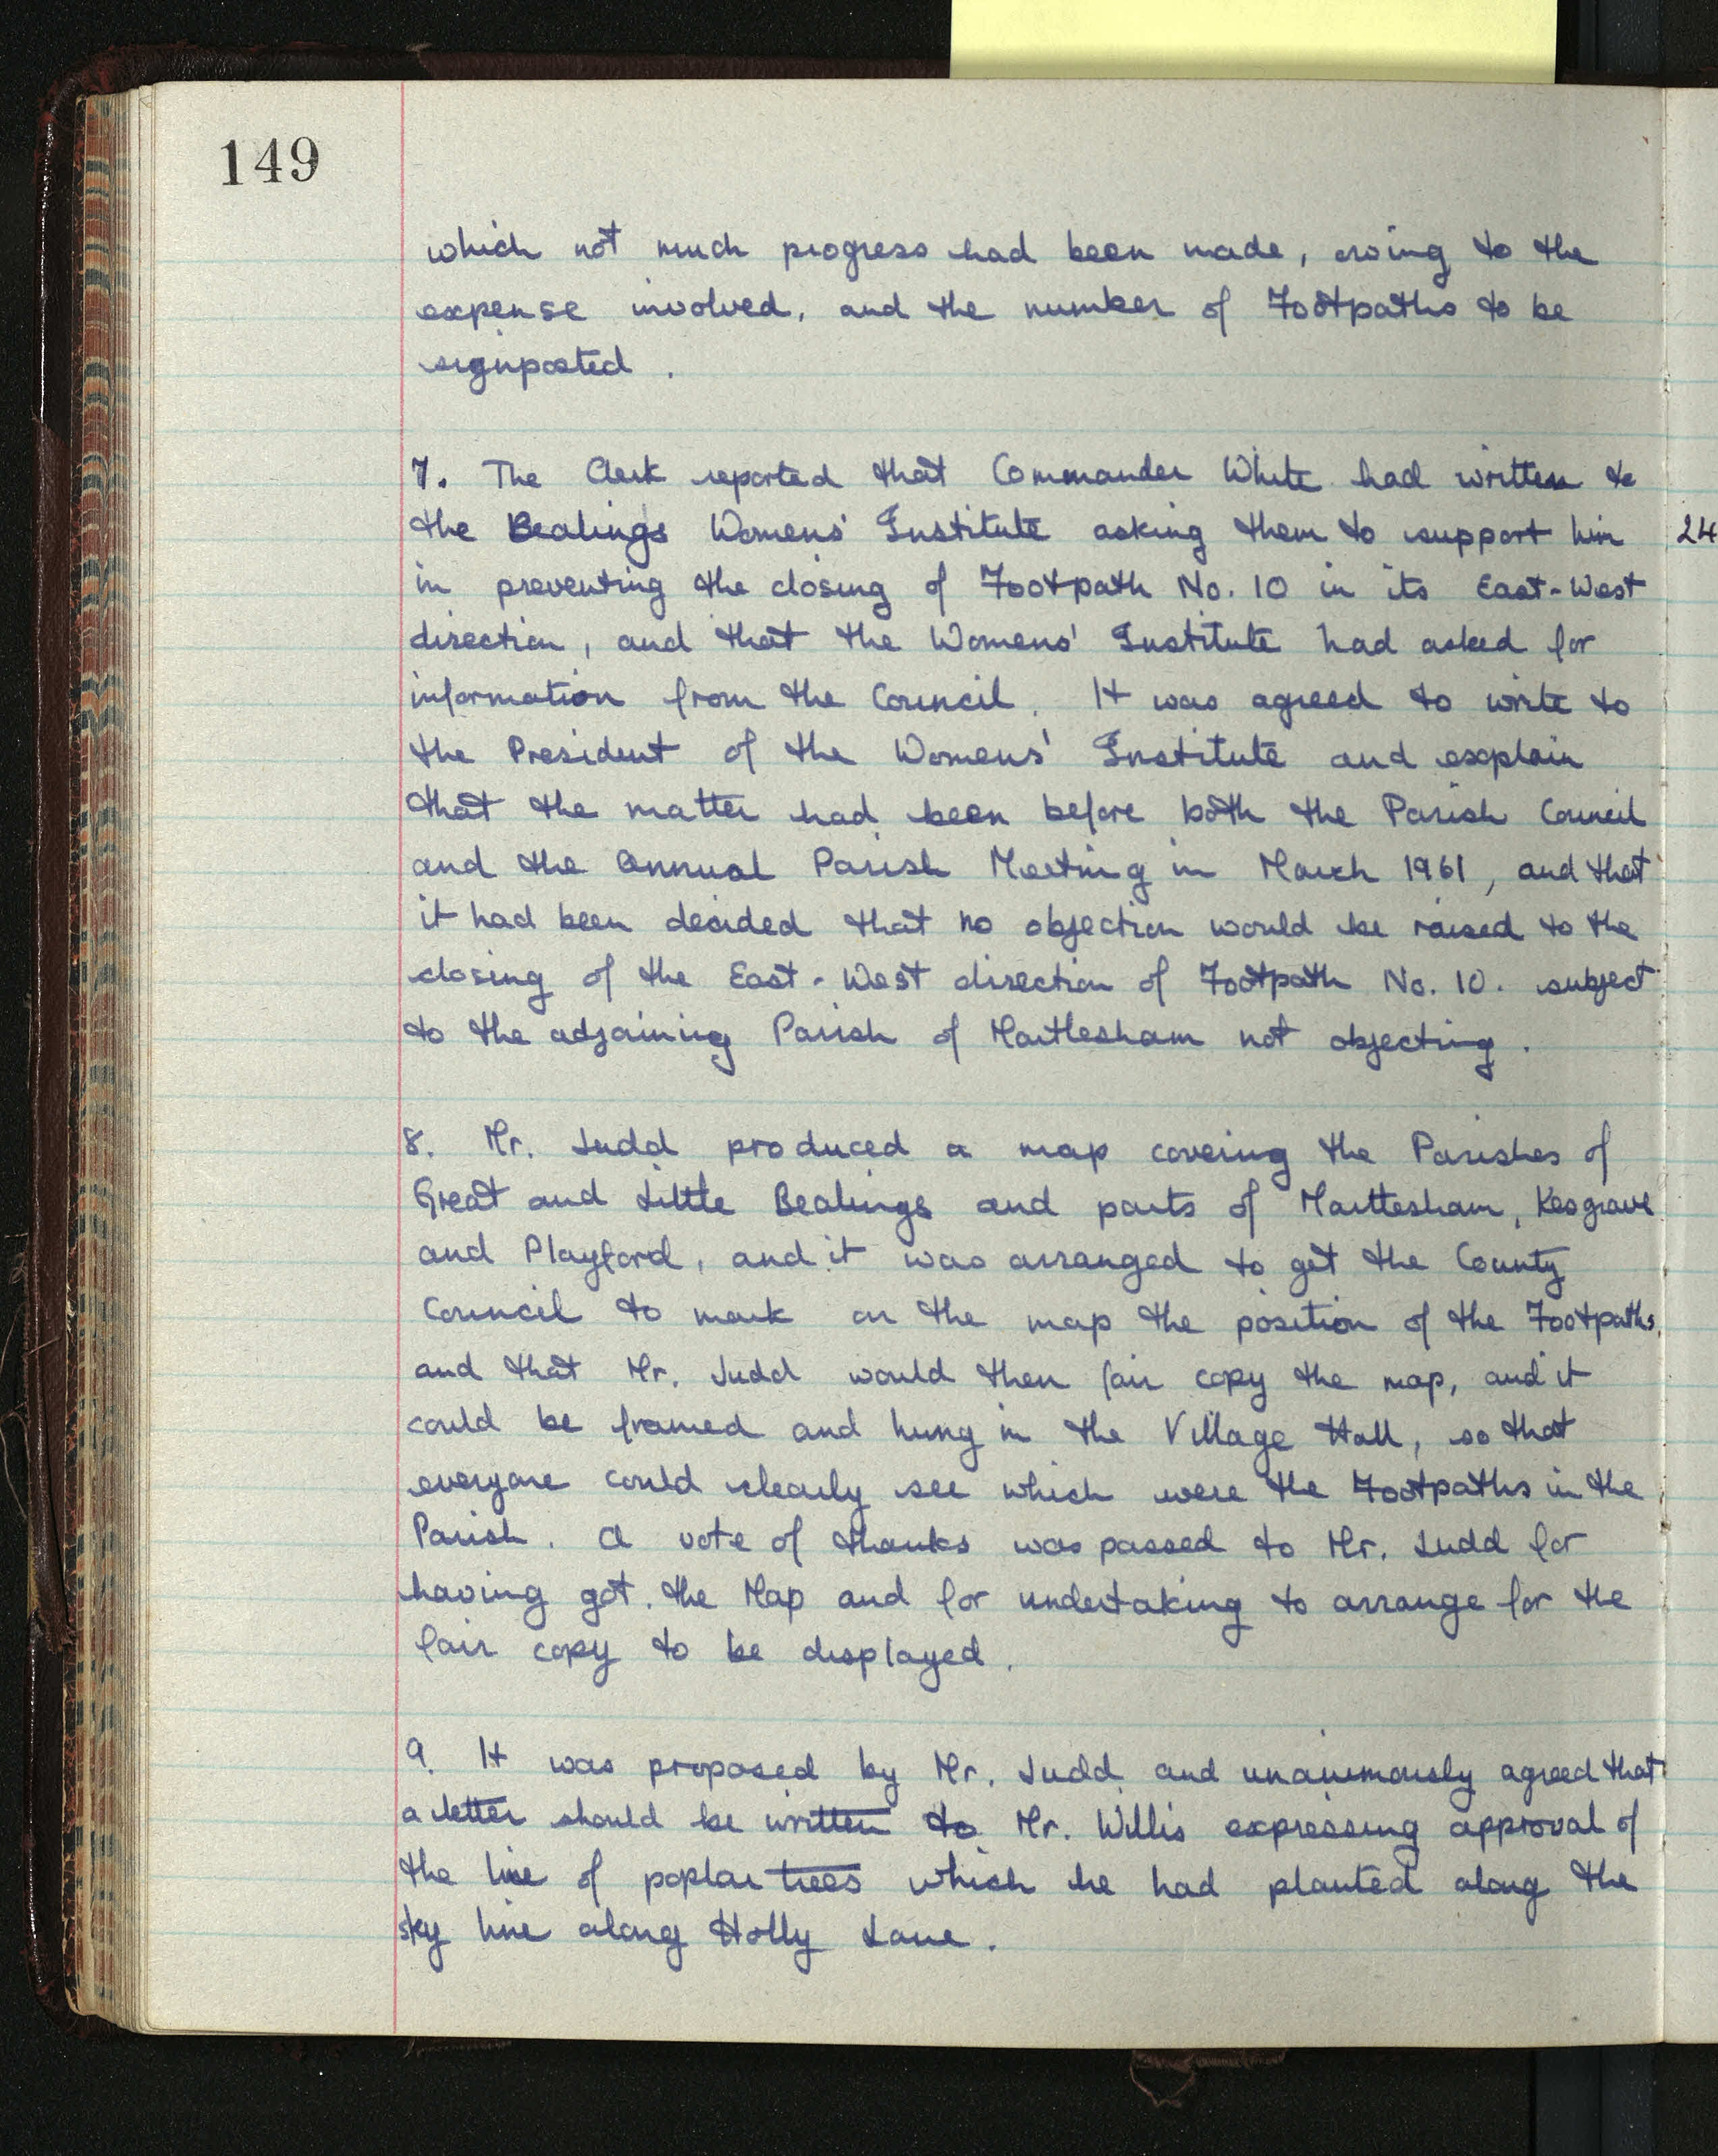 149
which not much progress had been made, owing to the
expense involved, and the number of Footpaths to be
signposted.
7. The Clerk reported that Commander White had written to
the Bealings Womens' Institute asking them to support him
24
in preventing the closing of Footpath No. 10 in its East-West
direction, and that the Womens' Institute had asked for
information from the Council. It was agreed to write to
the President of the Womens' Institute and explain
that the matter had been before both the Parish Council
and the Annual Parish Meeting in March 1961, and that
it had been decided that no objection would be raised to the
closing of the East-West direction of Footpath No. 10. subject
to the adjoining Parish of Martlesham not objecting.
8. Mr. Judd produced a map covering the Parishes of
Great and Little Bealings and parts of Martlesham, Kesgrave
and Playford, and it was arranged to get the County
Council to mark on the map the position of the Footpaths,
and that Mr. Judd would then fair copy the map, and it
could be framed and hung in the Village Hall, so that
everyone could clearly see which were the Footpaths in the
Parish. A vote of thanks was passed to Mr. Judd for
having got the Map and for undertaking to arrange for the
fair copy to be displayed.
9. It was proposed by Mr. Judd and unanimously agreed that
a letter should be written to Mr. Willis expressing approval of
the line of poplar trees which he had planted along the
sky line along Holly Lane.